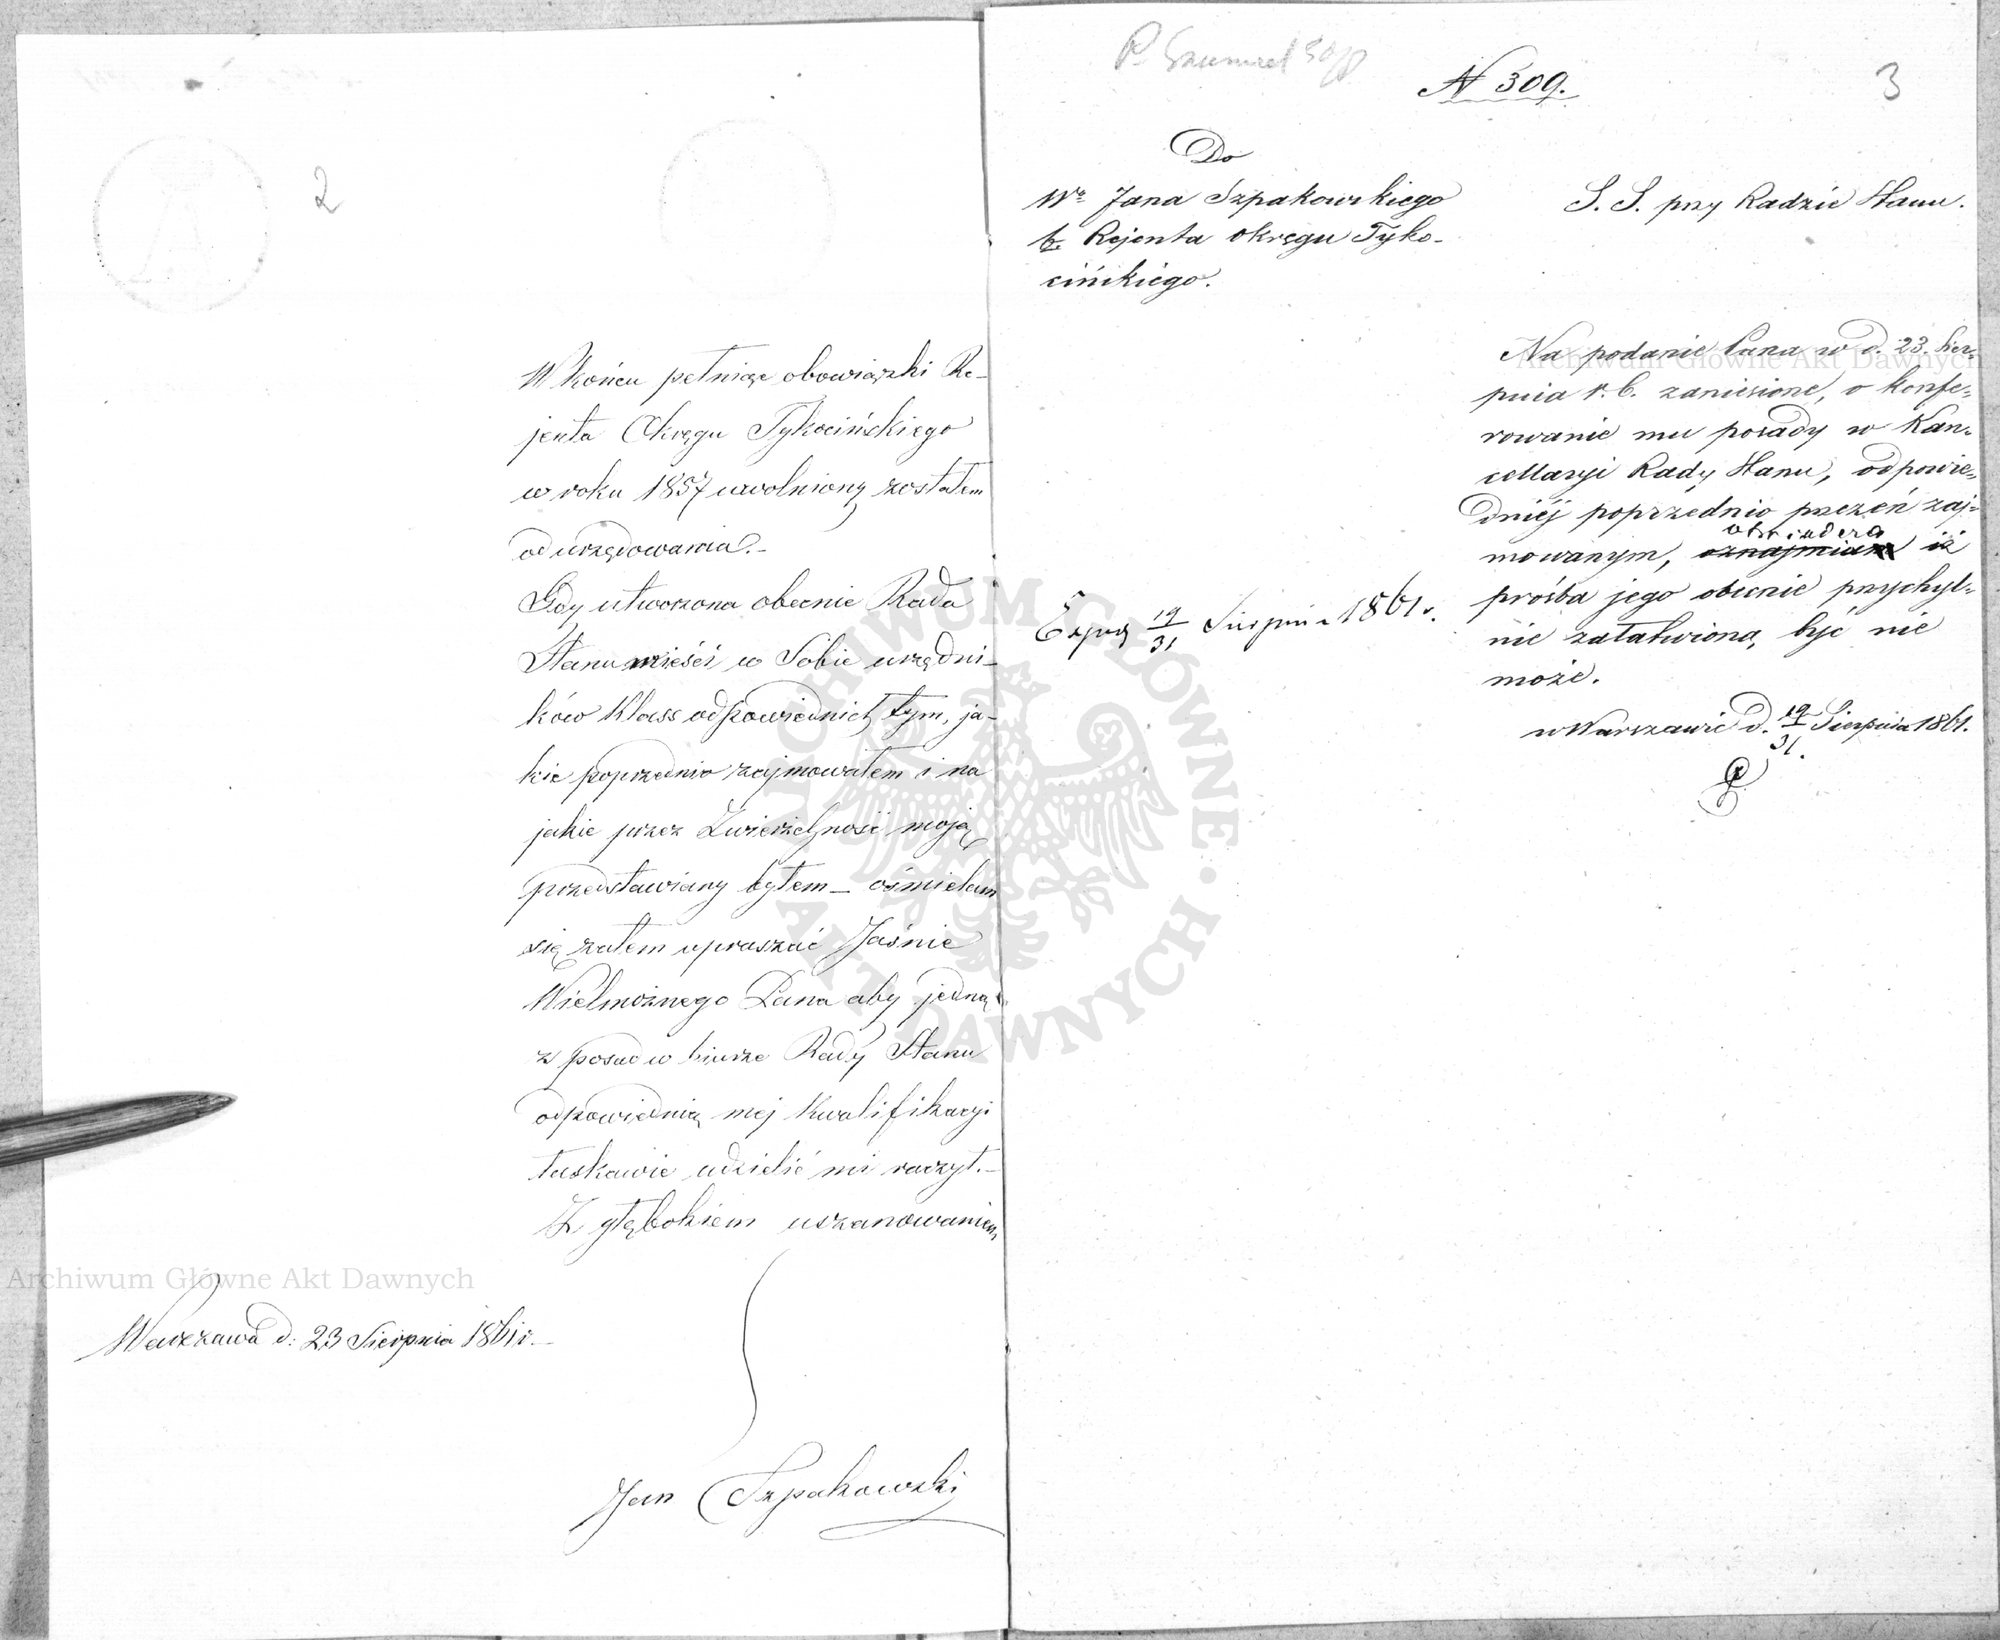 2
W końcu pełniąc obowiązki Re-
jenta Okręgu Tykocińskiego
w roku 1857 uwolniony zostałem
od urzędowania.-
Gdy utworzona obecnie Rada
Stanu mieści w Sobie urzędni-
ków Klass odpowiednich tym, ja-
kie poprzednio zajmowałem i na
jakie przez Zwierzchność moją
przedstawiany byłem – ośmielam
się zatem upraszać Jaśnie
Wielmożnego Pana aby jedną
z posad w biurze Rady Stanu
odpowiednią mej Kwalifikacyi
łaskawie udzielić mi raczył.-
Z głębokiem uszanowaniem
Warszawa d: 23 Sierpnia 1861 r.-
Jan Szpakowski
N 309.
3
Do
Wo Jana Szpakowskiego
b. Rejenta Okręgu Tyko-
cińskiego.
S. S. przy Radzie Stanu.
Na podanie Pana w d. 23. Sier-
pnia r. b. zaniesione, o konfe-
rowanie mu posady w Kan-
cellaryi Rady Stanu, odpowie-
dniéj poprzednio przezeń zaj-
mowanym, oznajmiam iż
prośba jego obecnie przychyl-
nie załatwioną być nie
może.
w Warszawie d. 19/31 Sierpnia 1861.
19/31 Sierpnia 1861 r.
Archiwum Główne Akt Dawnych
Archiwum Główne Akt Dawnych
ARCHIWUM GŁÓWNE AKT DAWNYCH